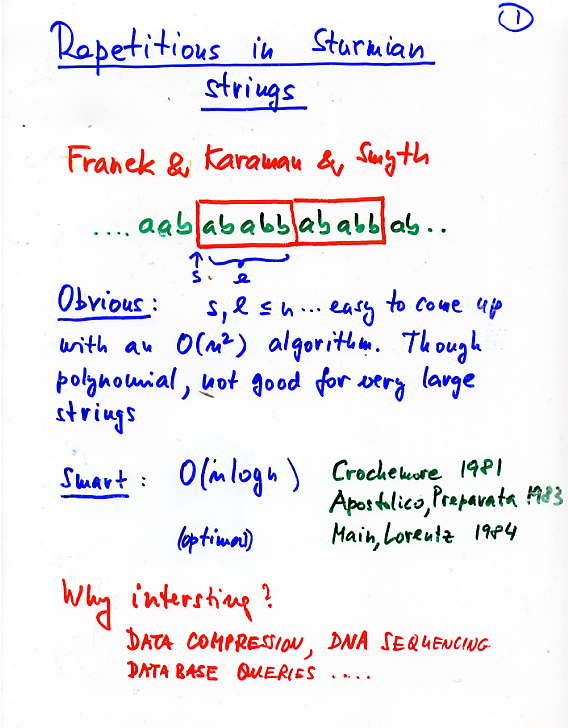 1
Rapetitions in Sturmian
strings
Franek & Karaman & Smyth
.... aab ababb ababb ab..
↑
s. l
Obvious: s, l ≤ n ... easy to come up
with an O(n²) algorithm. Though
polynomial, not good for very large
strings
Smart: O(n log n) Crochemore 1981
Apostolico, Preparata 1983
(optimal) Main, Lorentz 1984
Why intersting?
DATA COMPRESSION, DNA SEQUENCING
DATABASE QUERIES ....